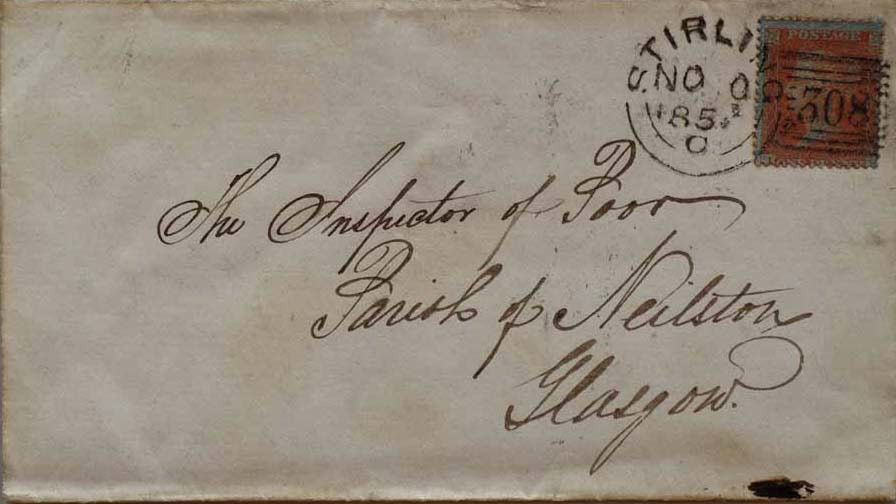 STIRLIN
POSTAGE
NO
185
C
308
The Inspector of Poor
Parish of Neilston
Glasgow.